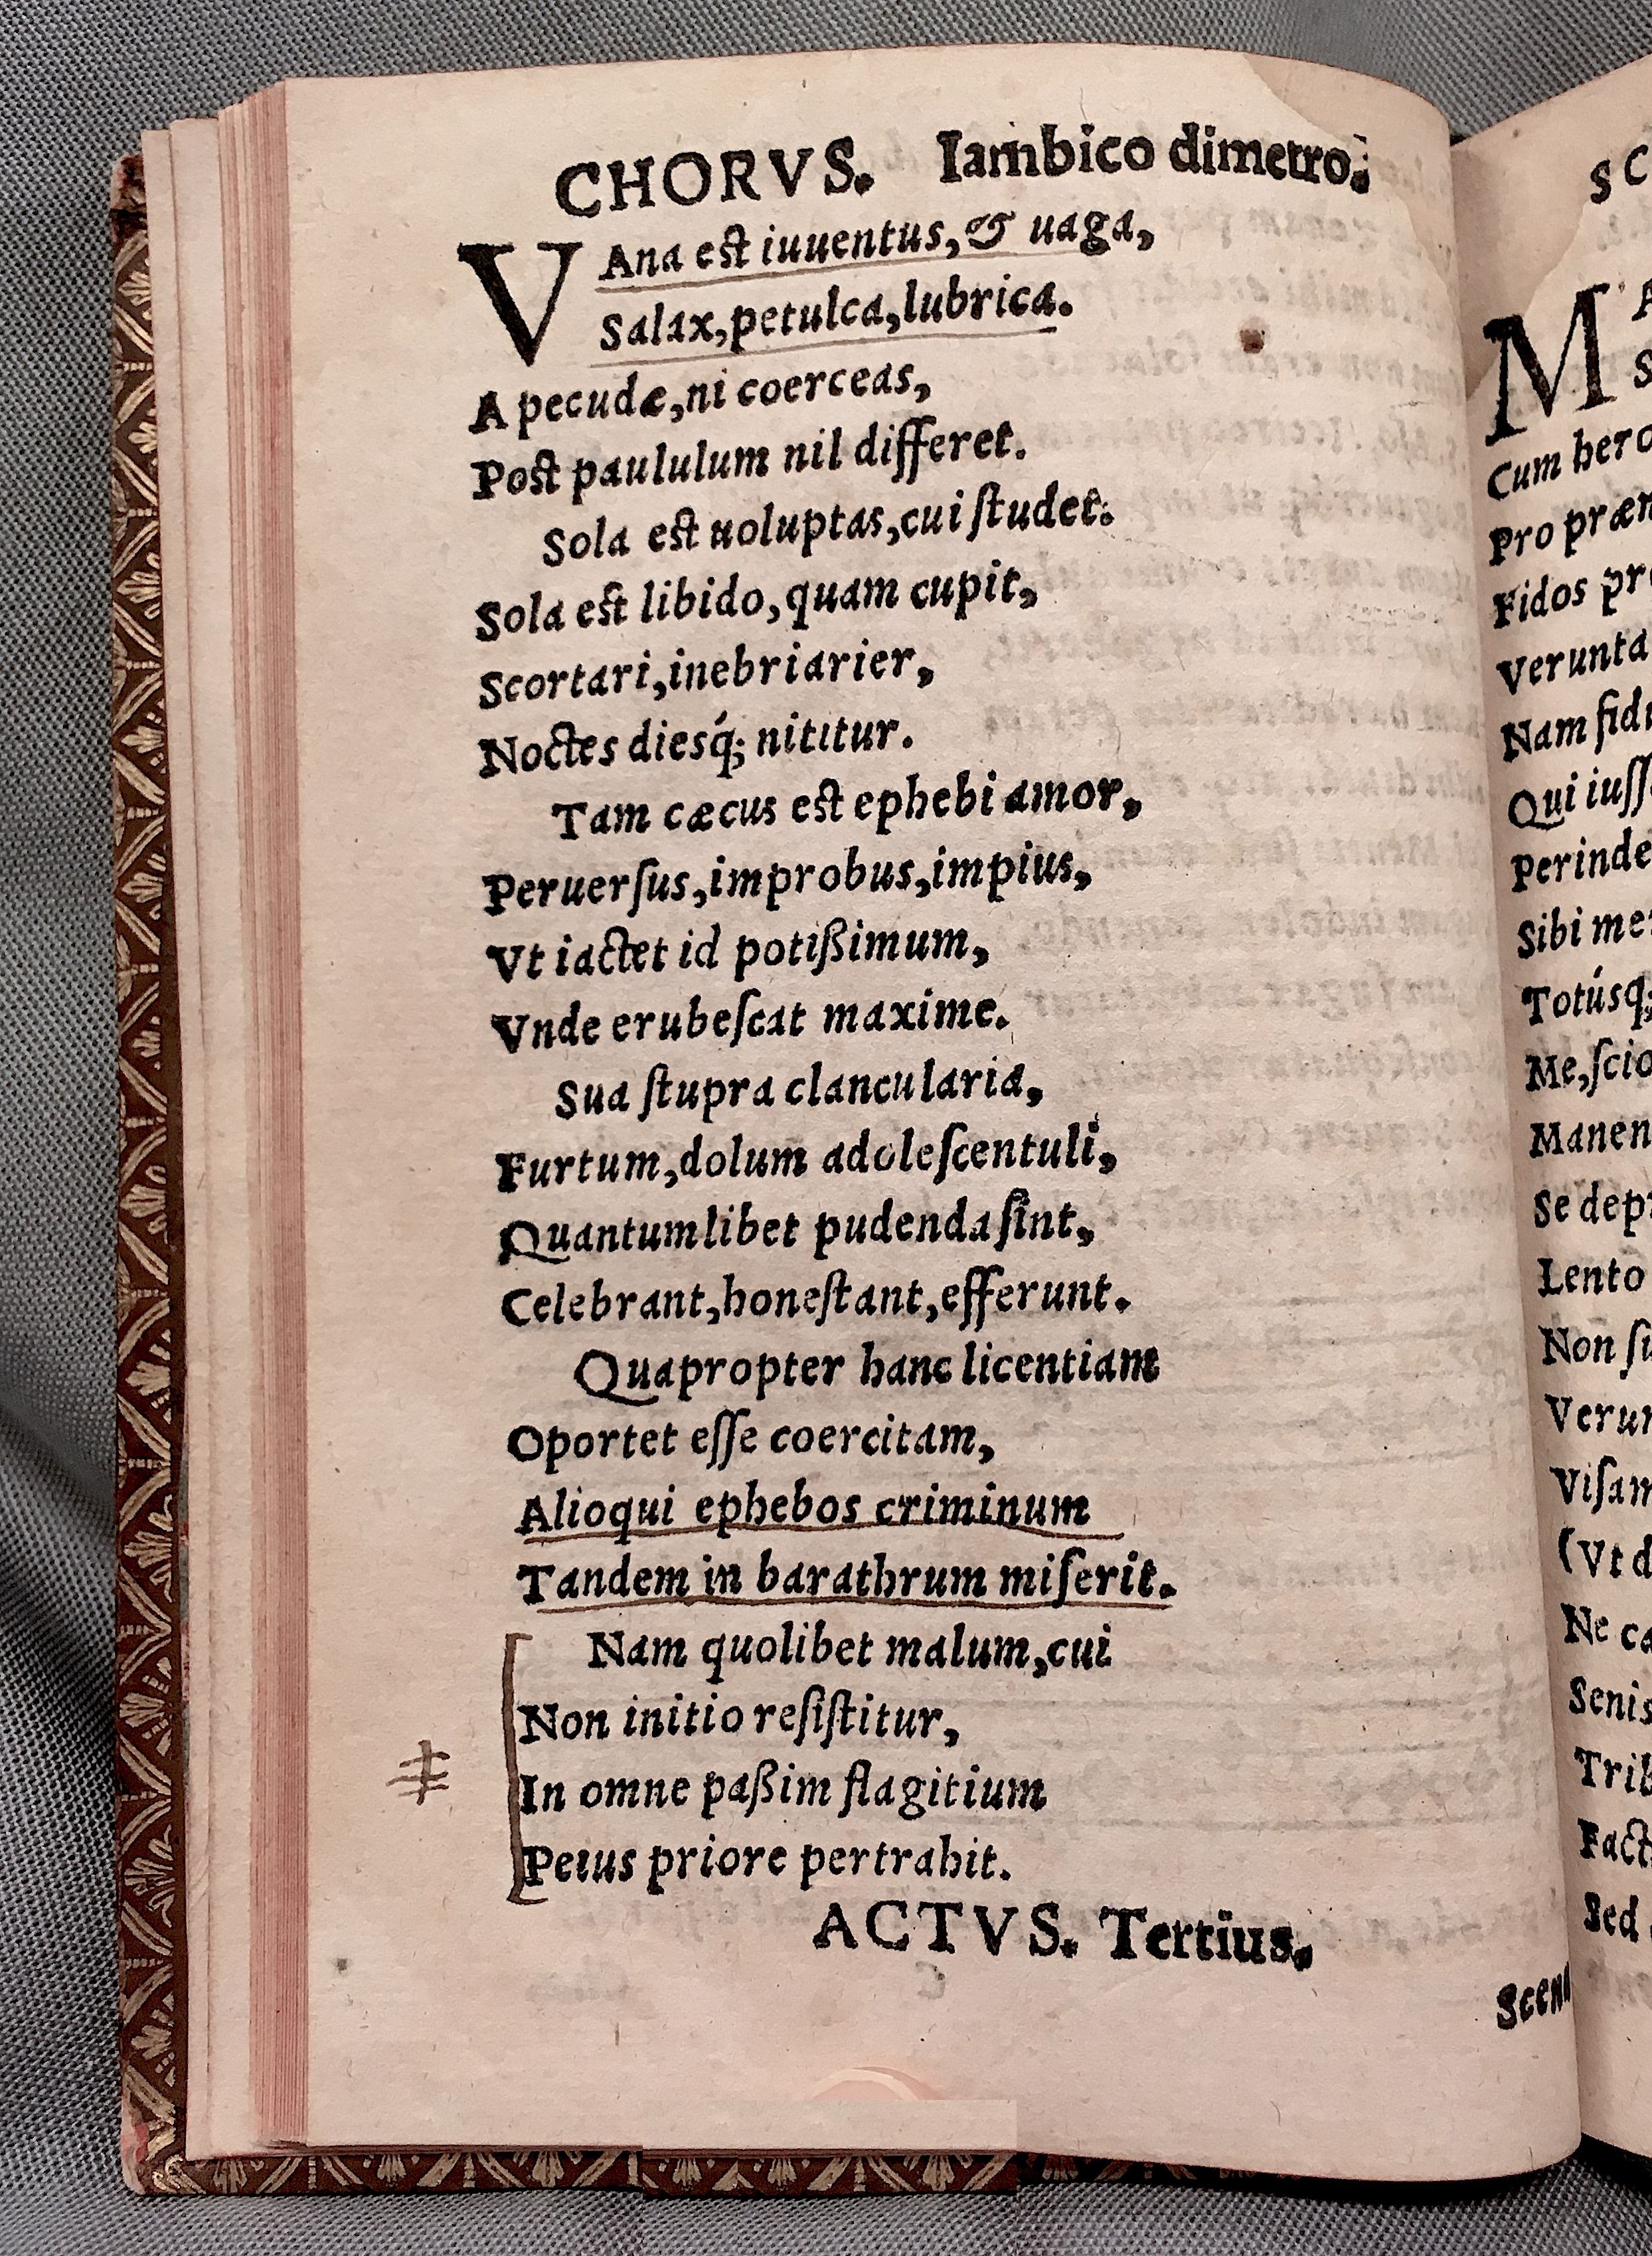 CHORVS. Iambico dimetro.
VAna est iuuentus, & uaga,
Salax, petulca, lubrica.
A pecudæ, ni coerceas,
Post paululum nil differet.
Sola est uoluptas, cui ſtudet:
Sola est libido, quam cupit,
Scortari, inebriarier,
Noctes diesq́; nititur.
Tam cæcus est ephebi amor,
Peruerſus, improbus, impius,
Vt iactet id potißimum,
Vnde erubeſcat maxime.
Sua ſtupra clancularia,
Furtum, dolum adoleſcentuli,
Quantumlibet pudenda ſint,
Celebrant, honeſtant, efferunt.
Quapropter hanc licentiam
Oportet eſſe coercitam,
Alioqui ephebos criminum
Tandem in barathrum miſerit.
Nam quolibet malum, cui
Non initio reſiſtitur,
In omne paßim flagitium
Peius priore pertrahit.
ACTVS. Tertius.
Scen
S C
M
Cum hero
Pro præm
Fidos pr
Verunta
Nam fid
Qui iuſſ
Perinde
Sibi me
Totúsq;
Me, ſcio
Manen
Se dep
Lento
Non ſu
Verum
Viſam
(Vt d
Ne ca
Senis
Trib
Fact
Sed